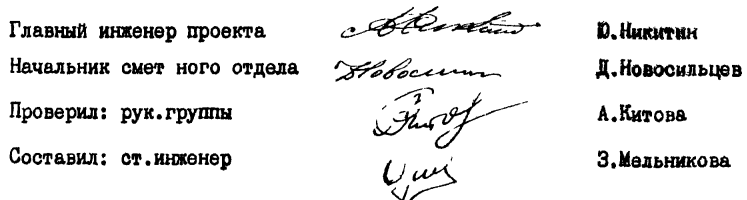 Главный инженер проекта Ю.Никитин
Начальник смет ного отдела Д.Новосильцев
Проверил: рук.группы А.Китова
Составил: ст.инженер З.Мельникова